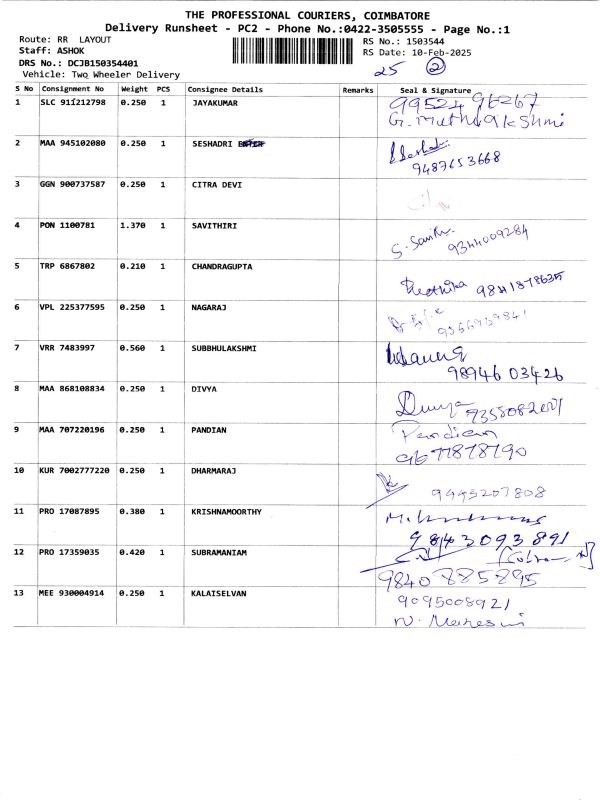 THE PROFESSIONAL COURIERS, COIMBATORE
Delivery Runsheet - PC2 - Phone No.:0422-3505555 - Page No.:1
Route: RR LAYOUT
Staff: ASHOK
DRS No.: DCJB150354401
Vehicle: Two Wheeler Delivery
RS No.: 1503544
RS Date: 10-Feb-2025
25 2
S No Consignment No Weight PCS Consignee Details Remarks Seal & Signature
1 SLC 911212798 0.250 1 JAYAKUMAR 99524 96267
G. Muthulakshmi
2 MAA 945102080 0.250 1 SESHADRI
9487653668
3 GGN 900737587 0.250 1 CITRA DEVI
4 PON 1100781 1.370 1 SAVITHIRI
9344009284
5 TRP 6867802 0.210 1 CHANDRAGUPTA
6 VPL 225377595 0.250 1 NAGARAJ
7 VRR 7483997 0.560 1 SUBBHULAKSHMI
98946 03426
8 MAA 868108834 0.250 1 DIVYA
9 MAA 707220196 0.250 1 PANDIAN Pandian
9677878790
10 KUR 7002777220 0.250 1 DHARMARAJ
9495207808
11 PRO 17087895 0.380 1 KRISHNAMOORTHY
9843093891
12 PRO 17359035 0.420 1 SUBRAMANIAM
9840885895
13 MEE 930004914 0.250 1 KALAISELVAN 9095008921